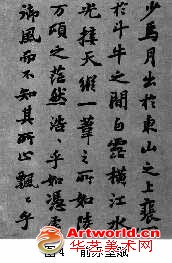 少焉月出於東山之上裴
於斗牛之間白露橫江水
光接天縱一葦之所如陵
万頃之茫然浩〻乎如馮虛
御風而不知其所止飄〻乎
图4 前赤壁赋
华艺美术网